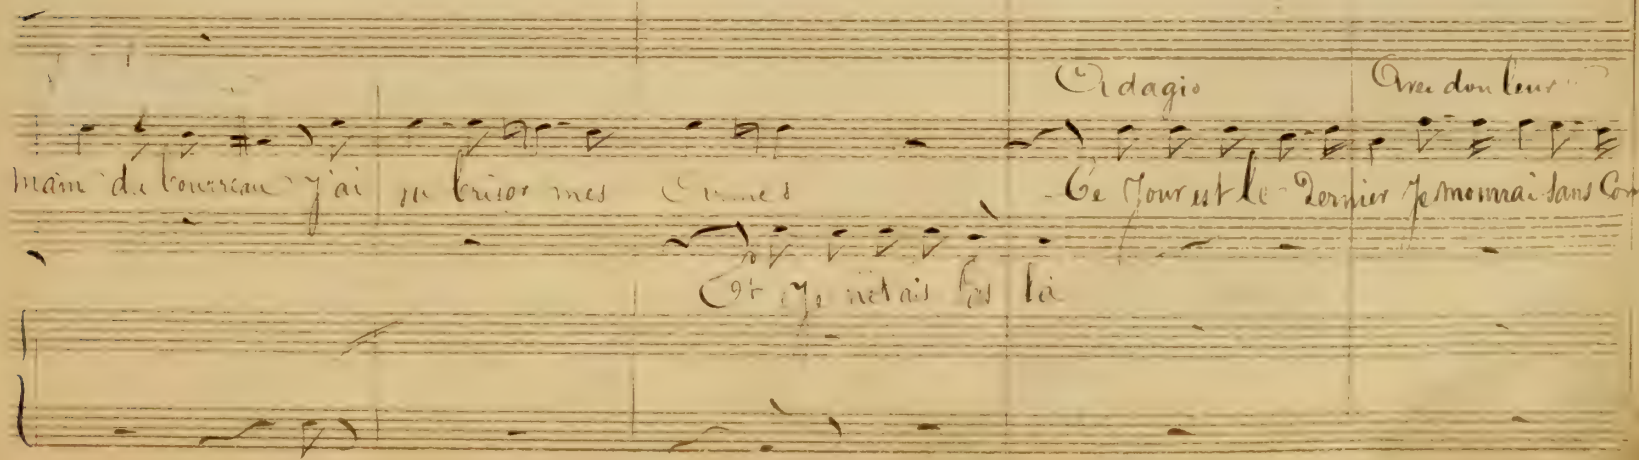 Adagio Avec douleur
main du bourreau j'ai su briser mes Ce jour est le Dernier je mourrai sans Con
Et Je n'étais pas là